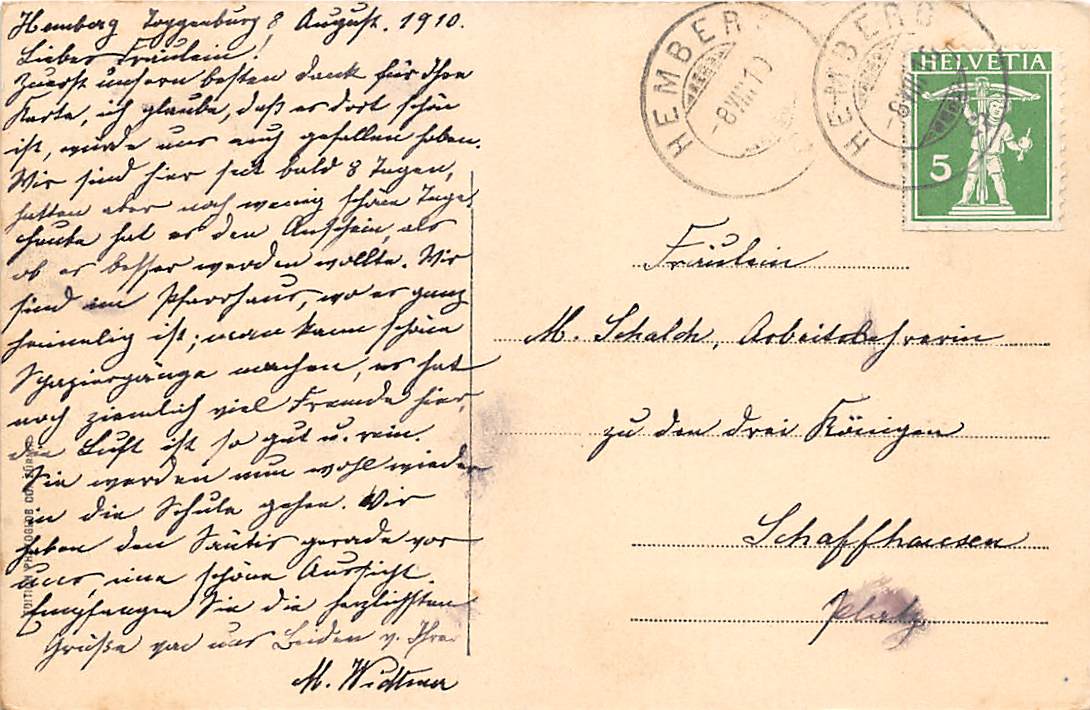 Hemberg Toggenburg 8 August. 1910.
Liebes Fräulein!
Zuerst unsern besten Dank für Ihre
Karte, ich glaube, daß es dort schön
ist, würde uns auch gefallen haben.
Wir sind hier seit bald 8 Tagen,
hatten aber noch wenig schöne Tage,
heute hat es den Anschein, als
ob es besser werden wollte. Wir
sind im Pfarrhaus, wo es ganz
heimelig ist; man kann schöne
Spaziergänge machen, es hat
noch ziemlich viel Fremde hier,
die Luft ist so gut u. rein.
Sie werden nun wohl wieder
in die Schule gehen. Wir
haben den Säntis gerade vor
uns, eine schöne Aussicht.
Empfangen Sie die herzlichsten
Grüße von uns Beiden v. Ihrer
M. Widtmer
EDITION PHOTOGLOB CO. ZÜRICH
HEMBERG
-8.VIII.10
HEMBERG
-8.VIII.10
HELVETIA
5
Fräulein
M. Schalch, Arbeitslehrerin
zu den drei Königen
Schaffhausen
Platz